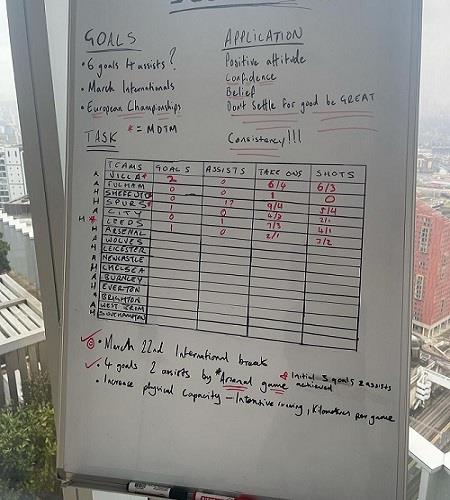 GOALS
• 6 goals 4 assists?
• March Internationals
• European Championships
* = MOTM
TASK
APPLICATION
Positive attitude
Confidence
Belief
Don't settle for good be GREAT
Consistency!!!
TEAMS GOALS ASSISTS TAKE ONS SHOTS
A VILLA* 2 0 6/4 6/3
A FULHAM 0 0
H SHEFF UTD 0
H SPURS 0 9/4 5/4
A CITY 0 0 2/1
H * LEEDS 0 1 7/3 4/1
H ARSENAL 1 0 2/1 3/2
A WOLVES
H LEICESTER
A NEWCASTLE
H CHELSEA
A BURNLEY
H EVERTON
BRIGHTON
A WEST HAM
H SOUTHAMPTON
• March 22nd International break
• 4 goals 2 assists by *Arsenal game * Initial 3 goals 2 assists achieved
• Increase physical capacity - Intensive running, Kilometres per game